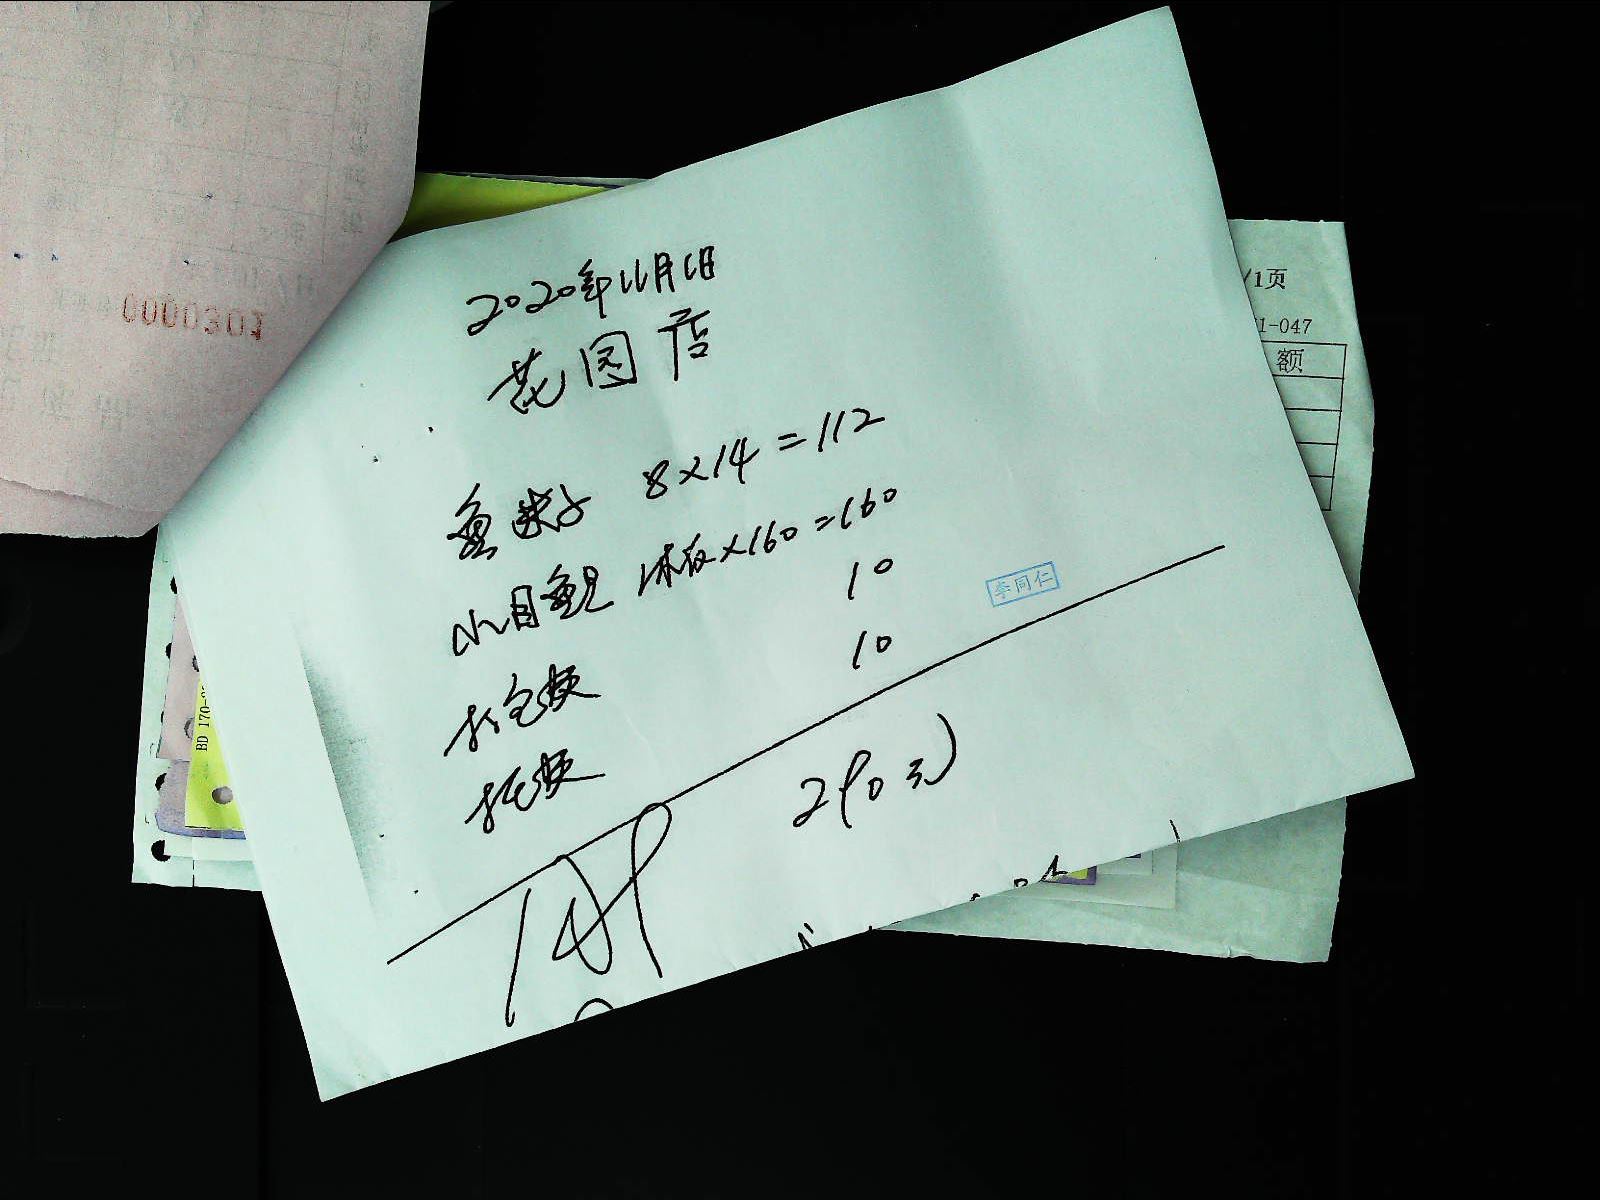 2020年11月1日
花园店
鱼嘴子 8×14=112
小目鱼 1板×160=160
打包费 10
托费 10
李同仁
290元
0000301
/1页
1-047
额
BD 170-